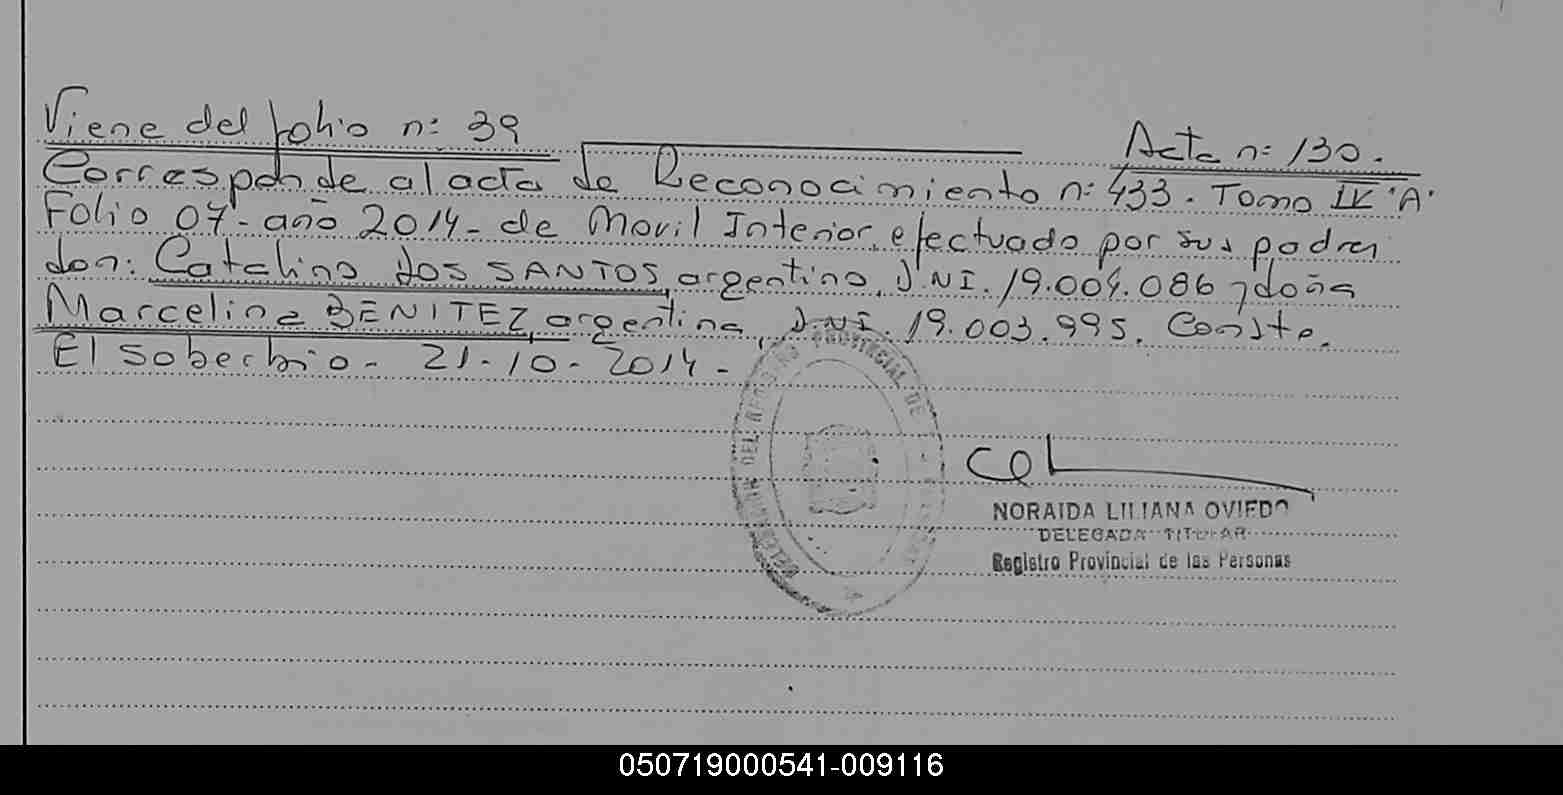 Viene del folio n: 39
Acta n: 130.
Corresponde al acta de Reconocimiento n: 433. Tomo IV "A"
Folio 07 - año 2014 - de Movil Interior, efectuado por sus padres
don: Catalino dos SANTOS, argentino, D.NI. 19.004.086 y doña
Marcelina BENITEZ, argentina, D.NI. 19.003.995. Conste.
El Soberbio - 21-10-2014 -
PROVINCIAL DE
NORAIDA LILIANA OVIEDO
DELEGADA TITULAR
Registro Provincial de las Personas
050719000541-009116